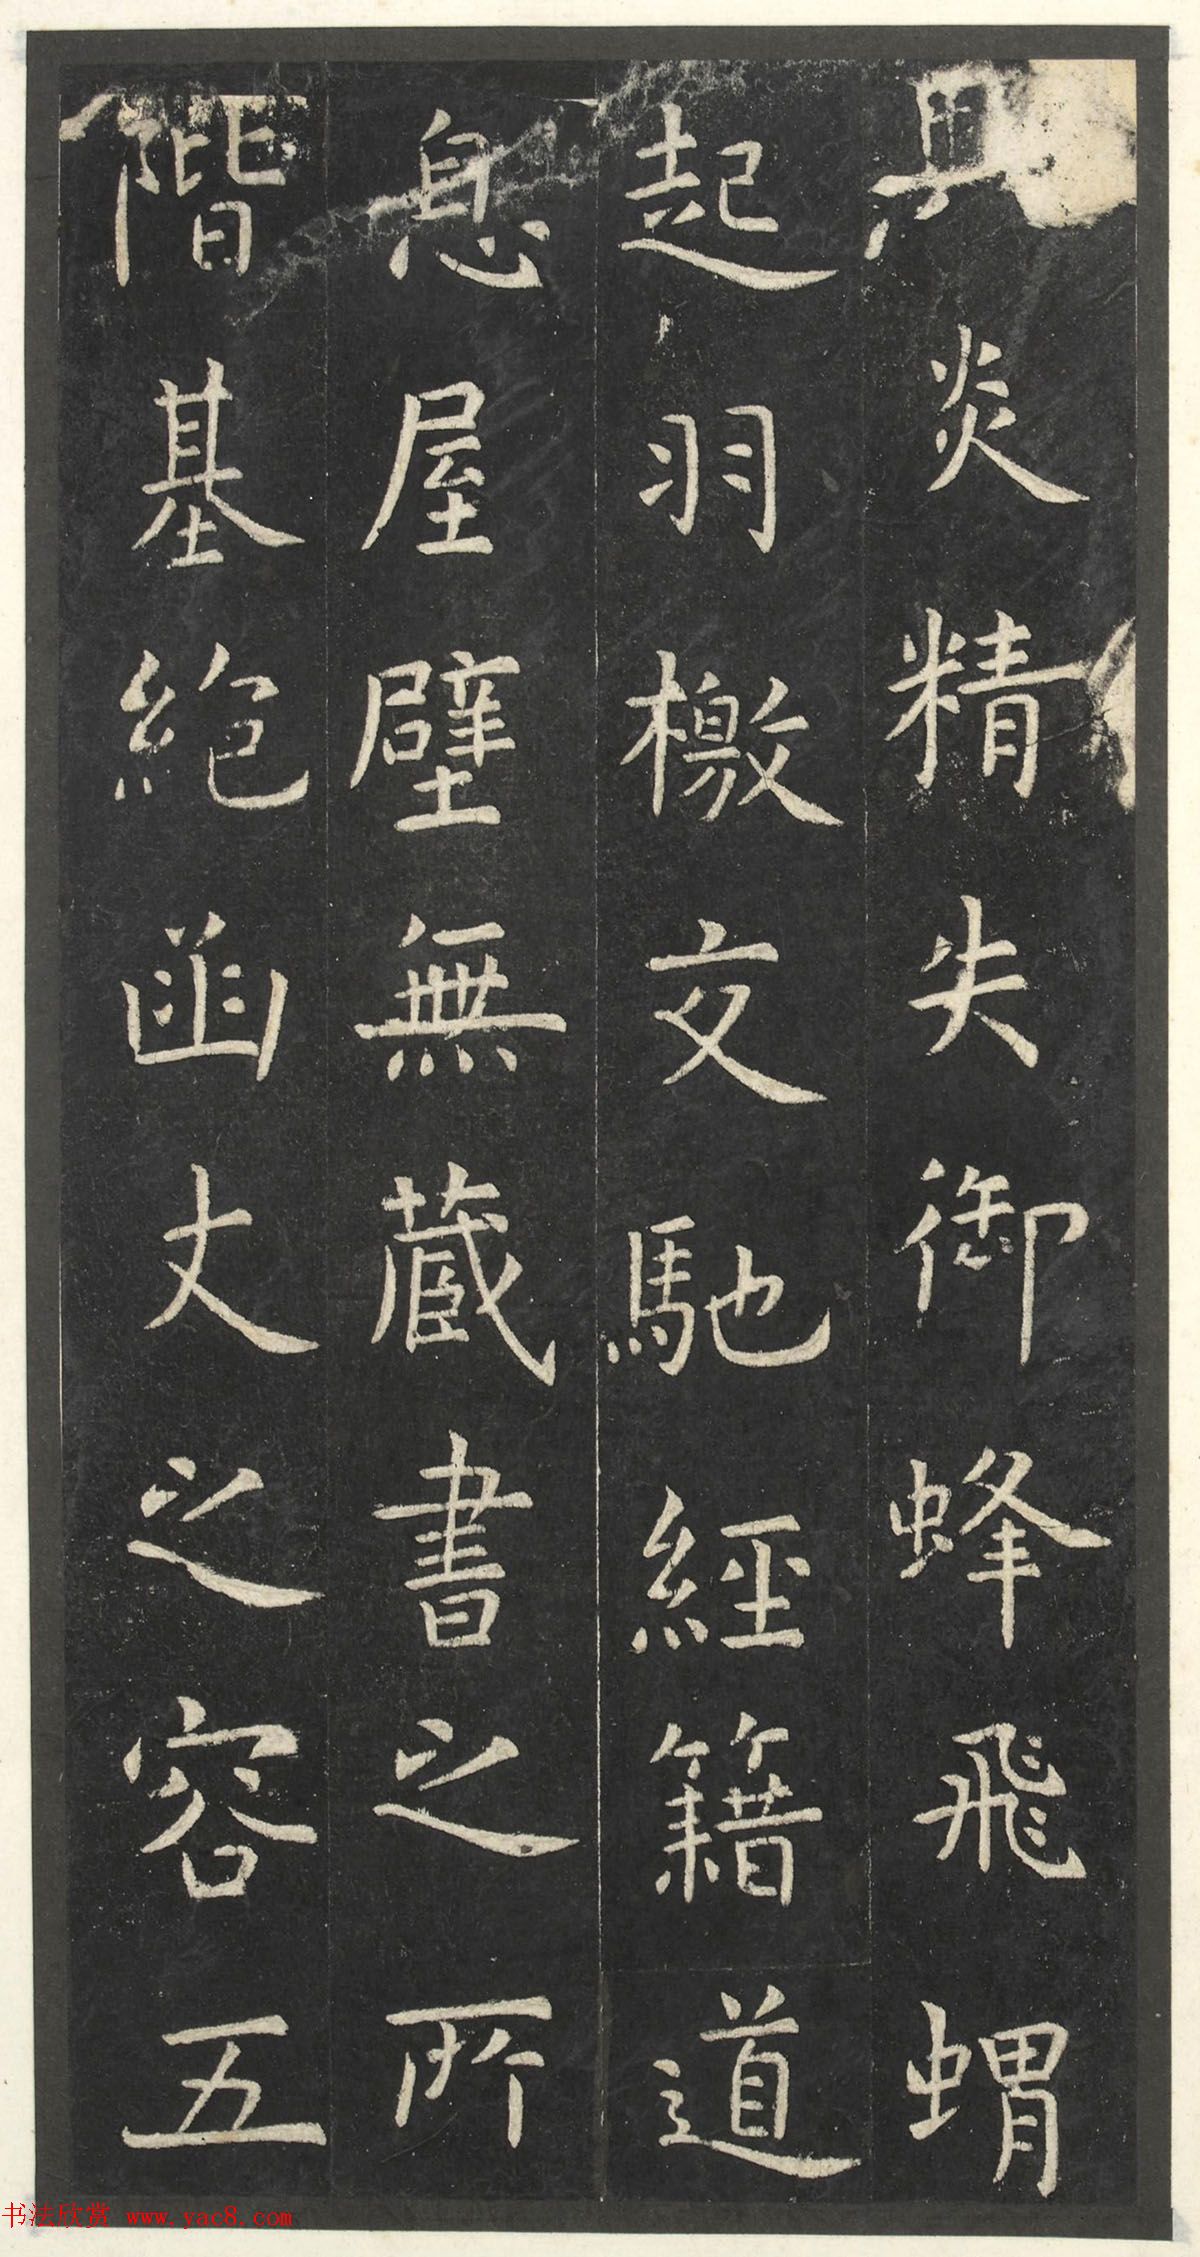 炎精失御蜂飛蝟
起羽檄交馳經籍道
息屋壁無藏書之所
階基絕函丈之容五
书法欣赏 www.yac8.com